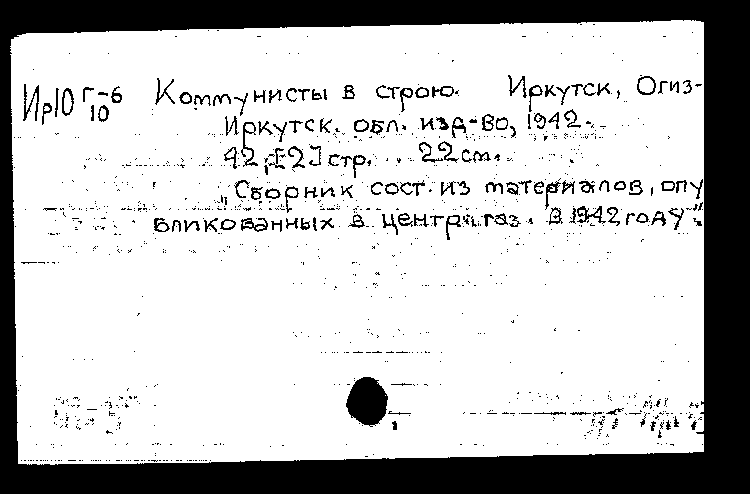 Ир10 Г-6 Коммунисты в строю. Иркутск, Огиз-
10
Иркутск. обл. изд-во, 1942.
42,[2] стр. 22 см.
„Сборник сост. из материалов, опу
бликованных в центр. газ. в 1942 году".